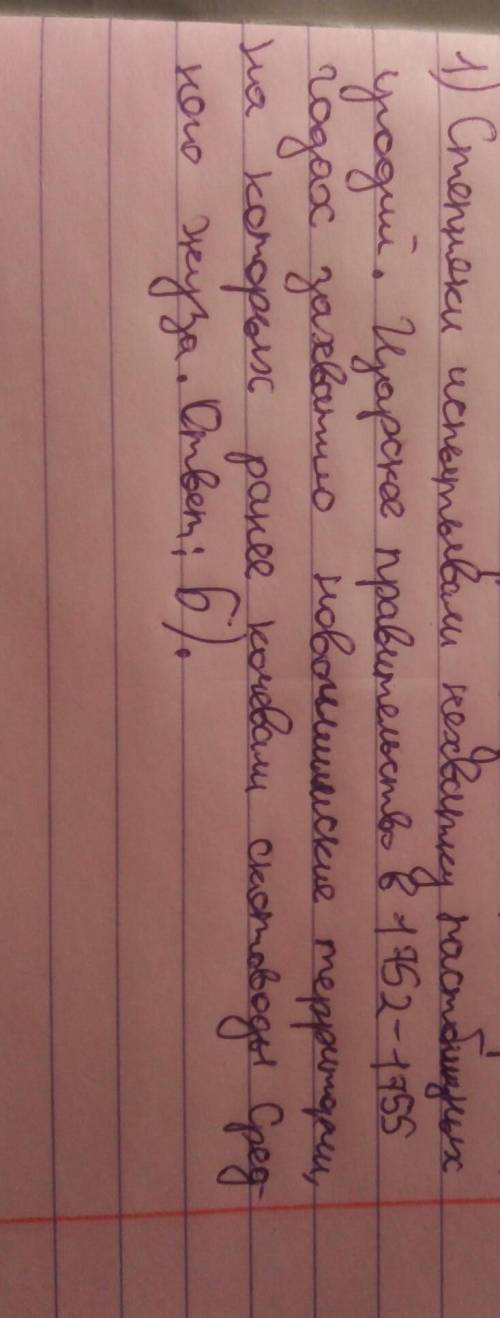 1) Степняки испытывали нехватку пастбищных
угодий. Царское правительство в 1752-1755
годах захватило новоишимские территории,
на которых ранее кочевали скотоводы Сред-
ного жуза. Ответ: б).